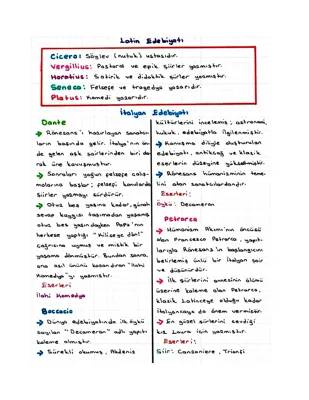 Latin Edebiyatı
Cicero: Söylev (nutuk) ustasıdır.
Vergilius: Pastoral ve epik şiirler yazmıştır.
Horatius: Satirik ve didaktik şiirler yazmıştır.
Seneca: Felsefe ve tragedya yazarıdır.
Platus: Komedi yazarıdır.
İtalyan Edebiyatı
Dante
→ Rönesans'ı hazırlayan sanatçı-
ların başında gelir. İtalya'nın ön
de gelen aşk şairlerinden biri ola
rak üne kavuşmuştur.
→ Sonraları yoğun felsefe çalış-
malarına başlar; felsefi konularda
şiirler yazmayı sürdürür.
→ Otuz beş yaşına kadar, günah
sevap kaygısı taşımadan yaşamış
otuz beş yaşındayken Papa'nın
herkese yaptığı "Kiliseye dön!"
çağrısına uymuş ve mistik bir
yaşama dönmüştür. Bundan sonra,
ona asıl ününü kazandıran "İlahi
Komedya"yı yazmıştır.
Eserleri
İlahi Komedya
Boccacio
→ Dünya edebiyatında ilk öykü
sayılan "Decameron" adlı yapıtı
kaleme almıştır.
→ Sürekli okumuş, Akdeniz
kültürlerini incelemiş; astronomi,
hukuk, edebiyatla ilgilenmiştir.
→ Konuşma diliyle oluşturulan
edebiyatı, antikçağ ve klasik
eserlerin düzeyine yükseltmiştir.
→ Rönesans hümanizminin teme
lini atan sanatçılardandır.
Eserleri:
Öykü: Decameron
Petrarca
→ Hümanizm Akımı'nın öncüsü
olan Francesco Petrarca, yapıt-
larıyla Rönesans'ın başlangıcını
belirlemiş ünlü bir İtalyan şair
ve düşünürdür.
→ İlk şiirlerini annesinin ölümü
üzerine kaleme alan Petrarca,
klasik Latinceye olduğu kadar
İtalyancaya da önem vermiştir.
→ En güzel şiirlerini sevdiği
kız Laura için yazmıştır.
Eserleri:
Şiir: Cansoniere, Trionfi